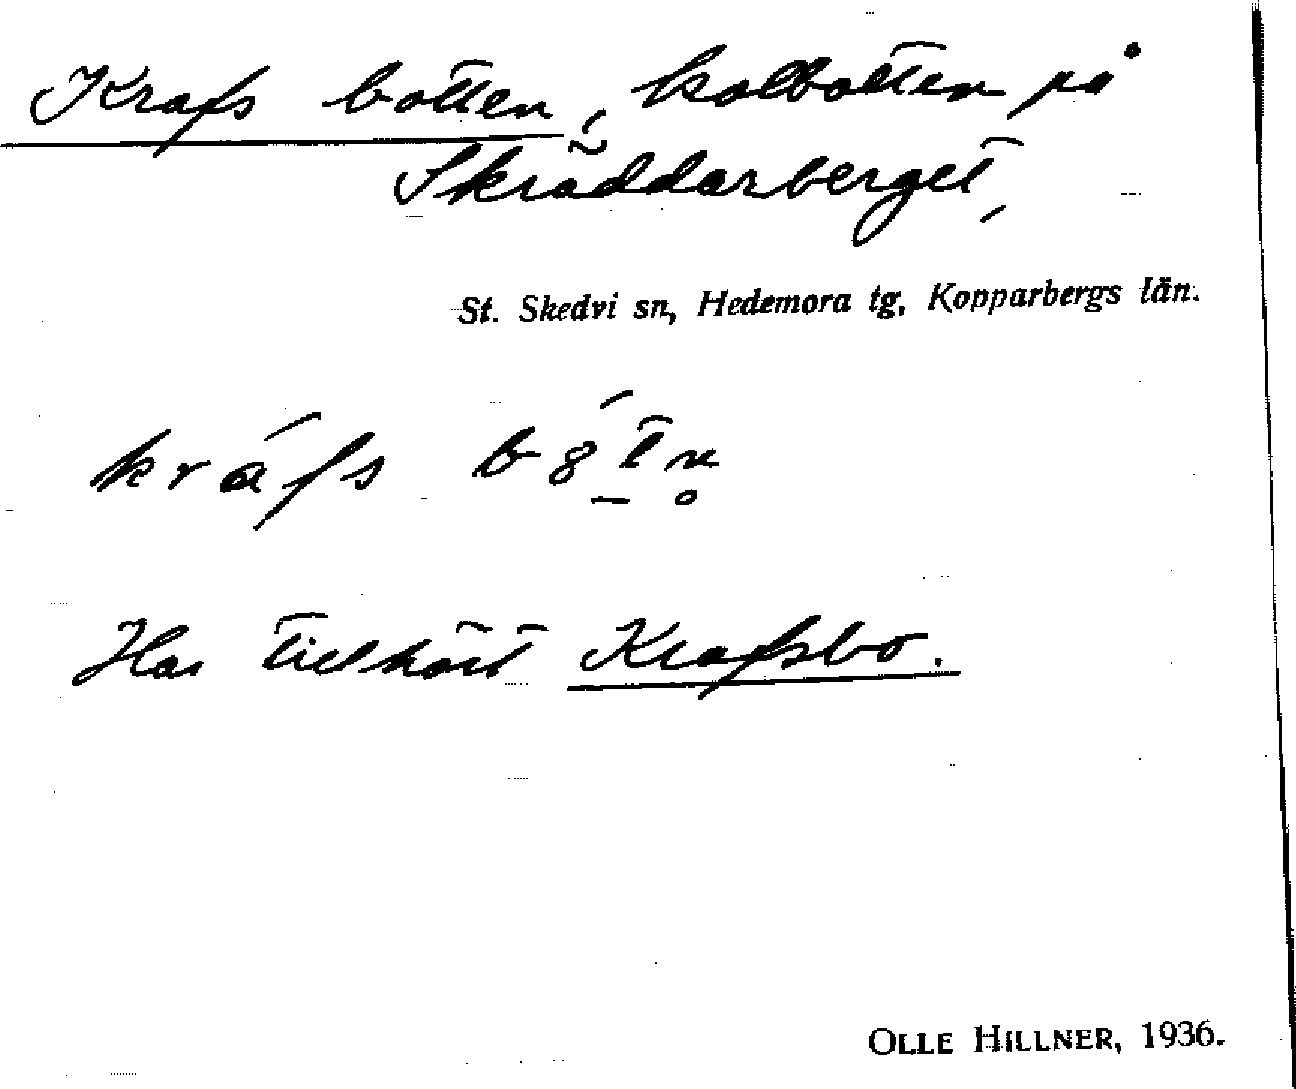 Krafs botten, kolbotten på
Skräddarberget,
St. Skedvi sn, Hedemora tg, Kopparbergs län.
Har tillhört Krafsbo.
OLLE HILLNER, 1936.